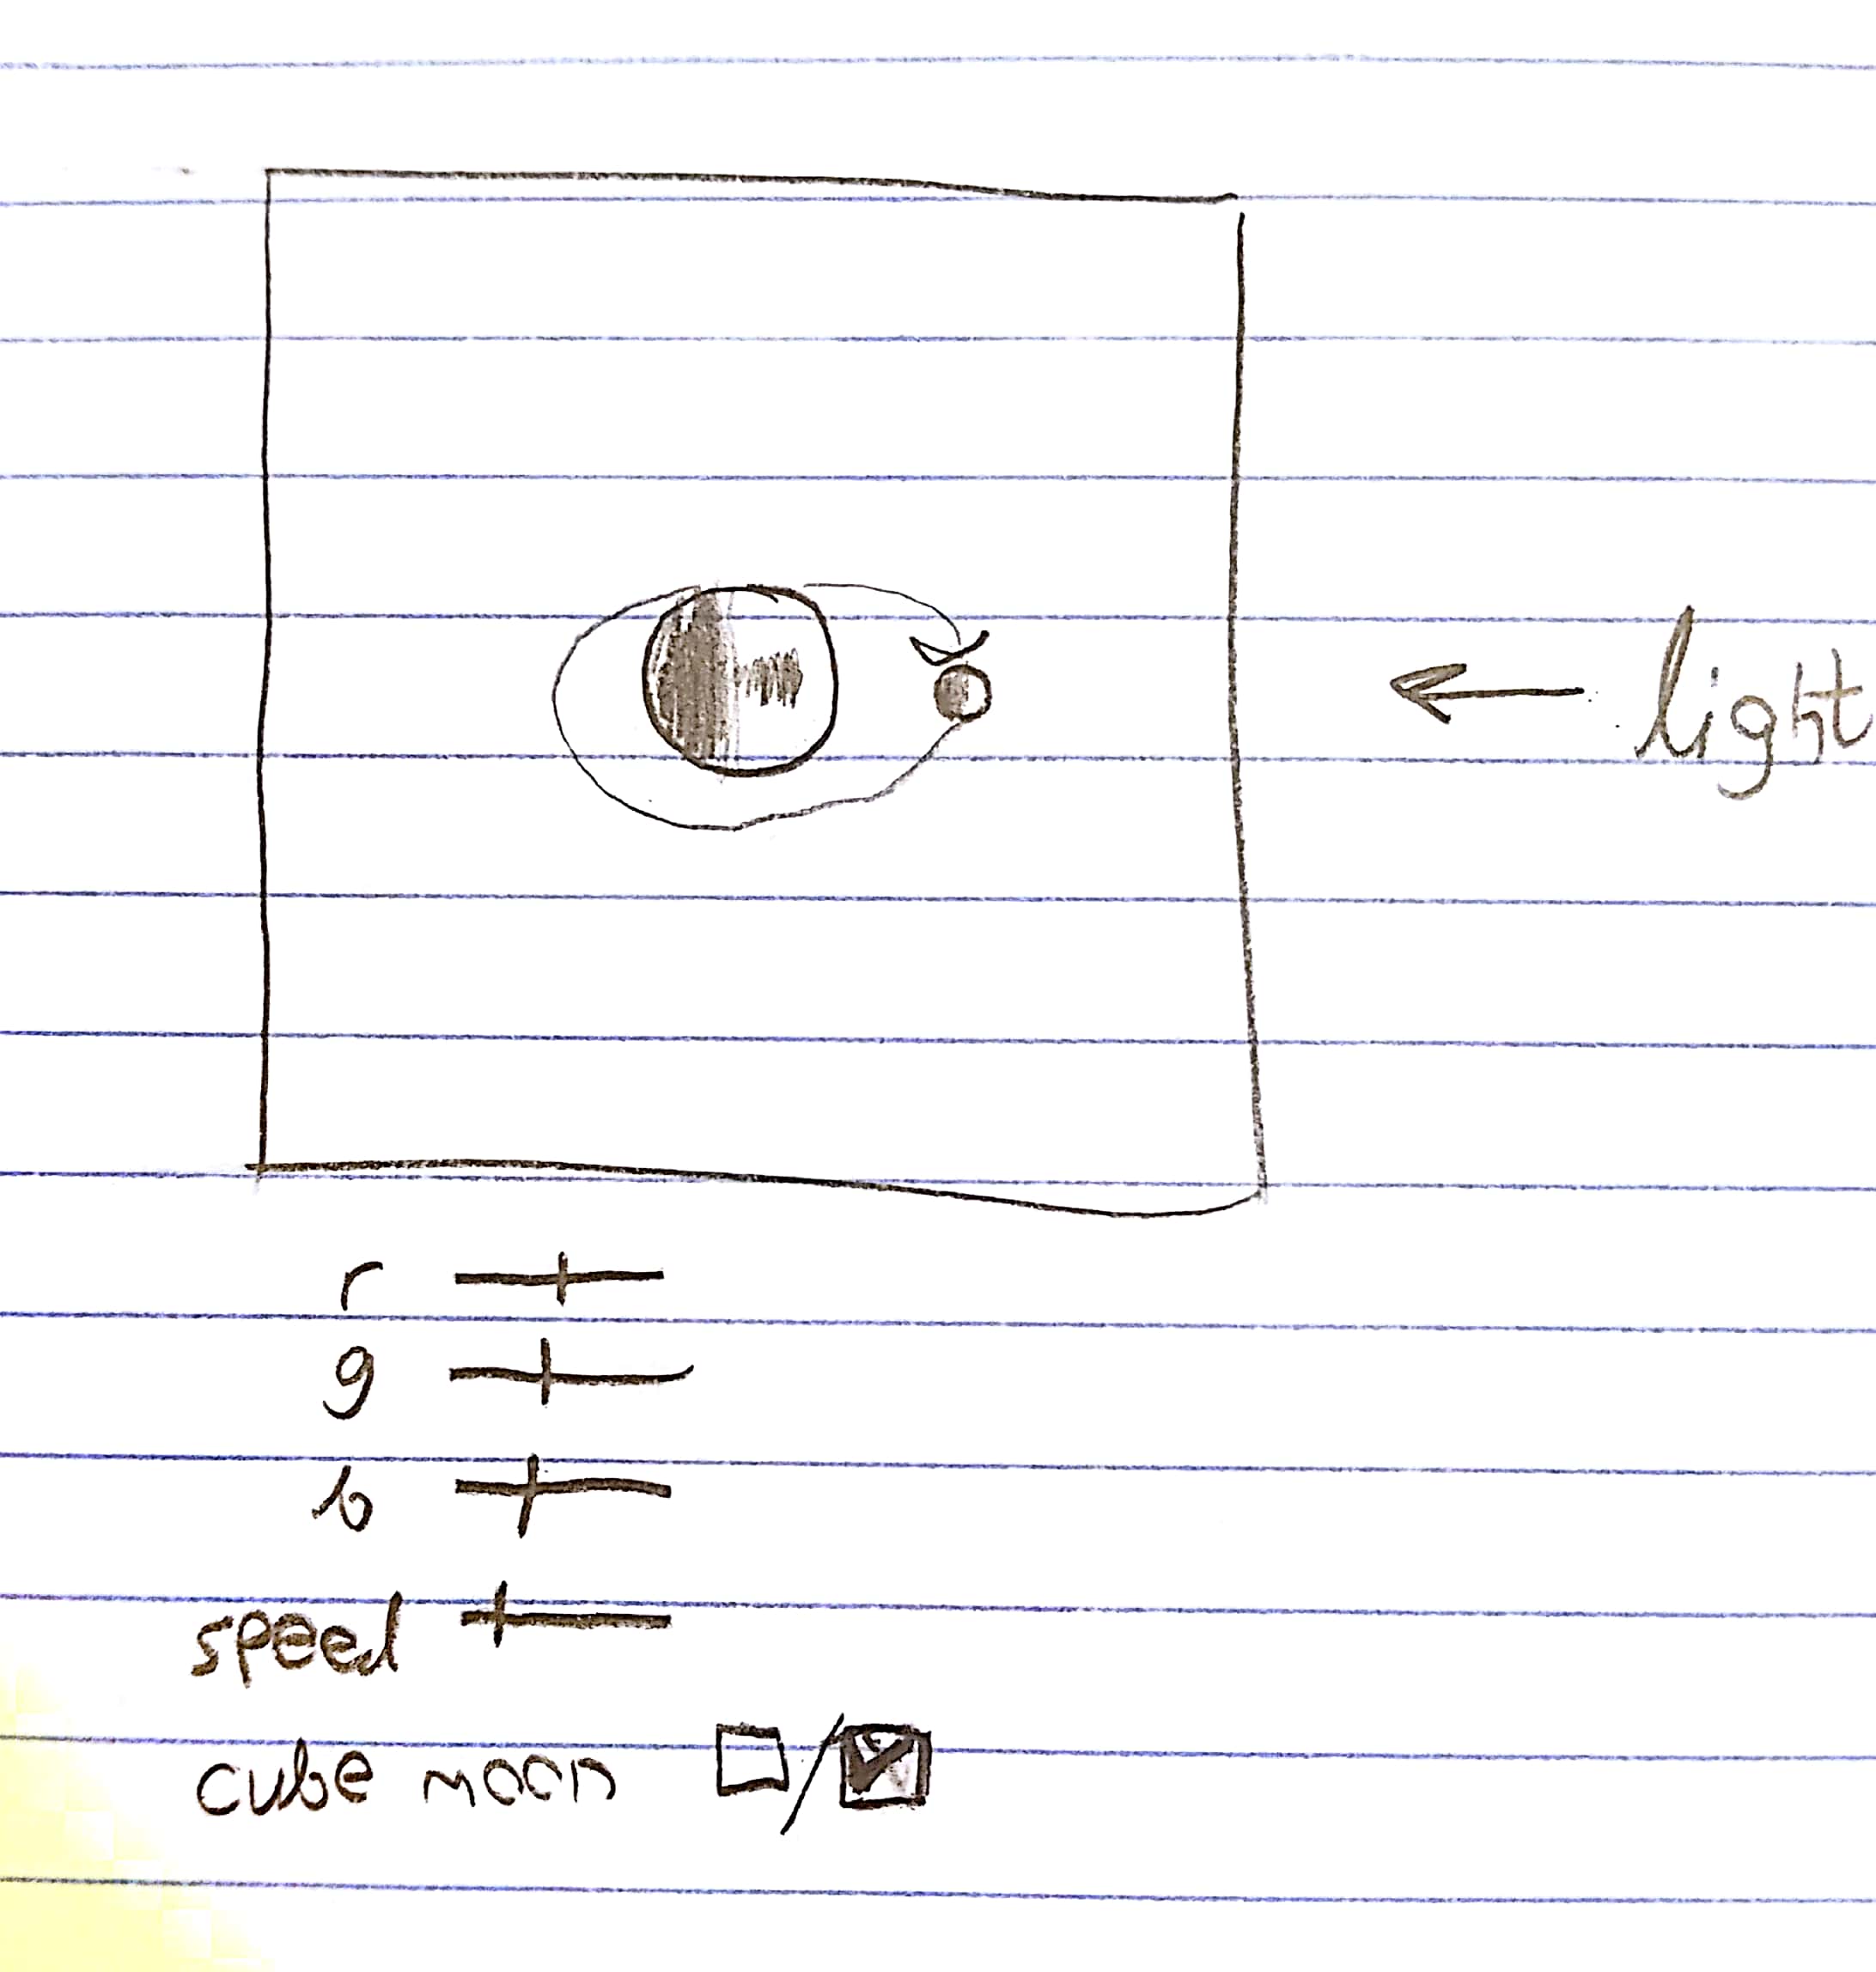 light
r
g
b
speed
cube moon